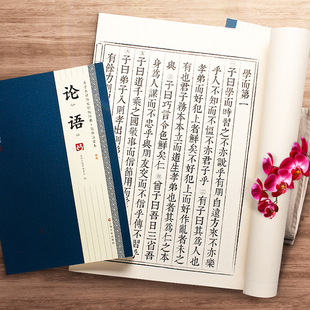 學而第一
子曰學而時習之不亦說乎有朋自遠方來不亦樂
乎人不知而不慍不亦君子乎 有子曰其為人也
孝弟而好犯上者鮮矣不好犯上而好作亂者未之
有也君子務本本立而道生孝弟也者其為仁之本
與 子曰巧言令色鮮矣仁 曾子曰吾日三省吾
身為人謀而不忠乎與朋友交而不信乎傳不習
乎 子曰道千乘之國敬事而信節用
子曰弟子入則孝出則
有餘力則
论语